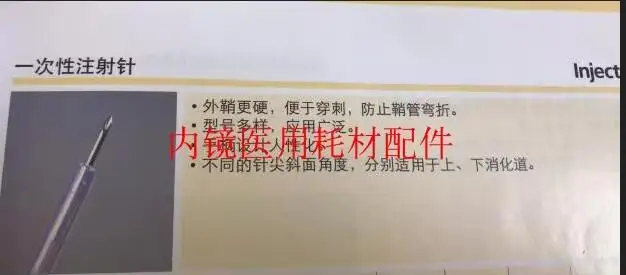 一次性注射针
Inject
• 外鞘更硬，便于穿刺，防止鞘管弯折。
• 型号多样，应用广泛。
内镜医用耗材配件
• 手柄设计人性化。
• 不同的针尖斜面角度，分别适用于上、下消化道。